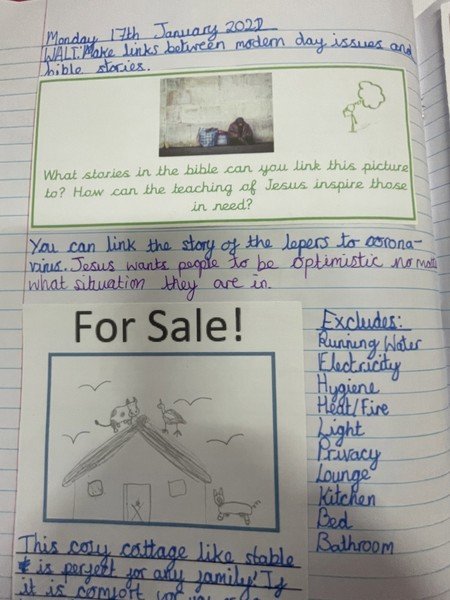 Monday 17th January 2022
WALT: Make links between modern day issues and
bible stories.
What stories in the bible can you link this picture
to? How can the teaching of Jesus inspire those
in need?
You can link the story of the lepers to corona-
virus. Jesus wants people to be optimistic no
what situation they are in.
For Sale!
Excludes:
Running Water
Electricity
Hygiene
Heat/Fire
Light
Privacy
Lounge
Kitchen
Bed
Bathroom
This cosy cottage like stable
is perfect for any family! If
it is comfort you